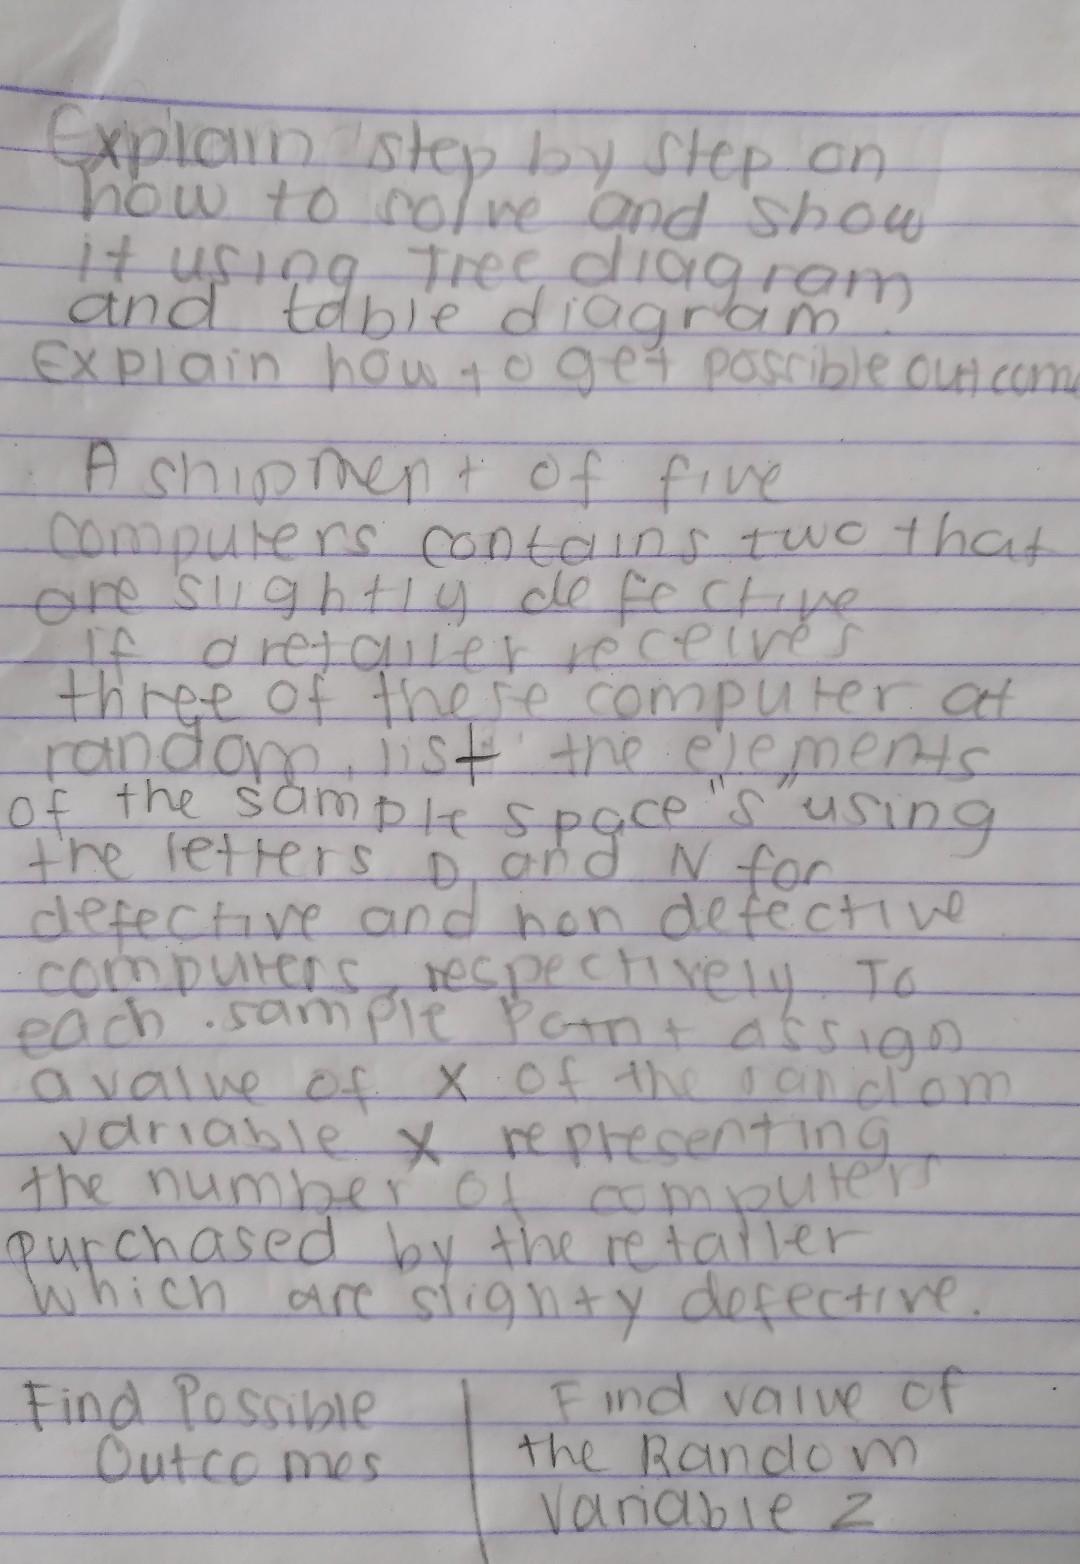 Explain step by step on
how to solve and show
it using Tree diagram
and table diagram.
Explain how to get possible outcome
A shipment of five
computers contains two that
are slightly defective
if a retailer receives
three of these computer at
random, list the elements
of the sample space "S" using
the letters D, and N for
defective and non defective
computers, respectively. To
each sample Point assign
a value of x of the random
variable x representing
the number of computers
purchased by the retailer
which are slighty defective.
Find Possible
Outcomes
Find value of
the Random
Variable Z